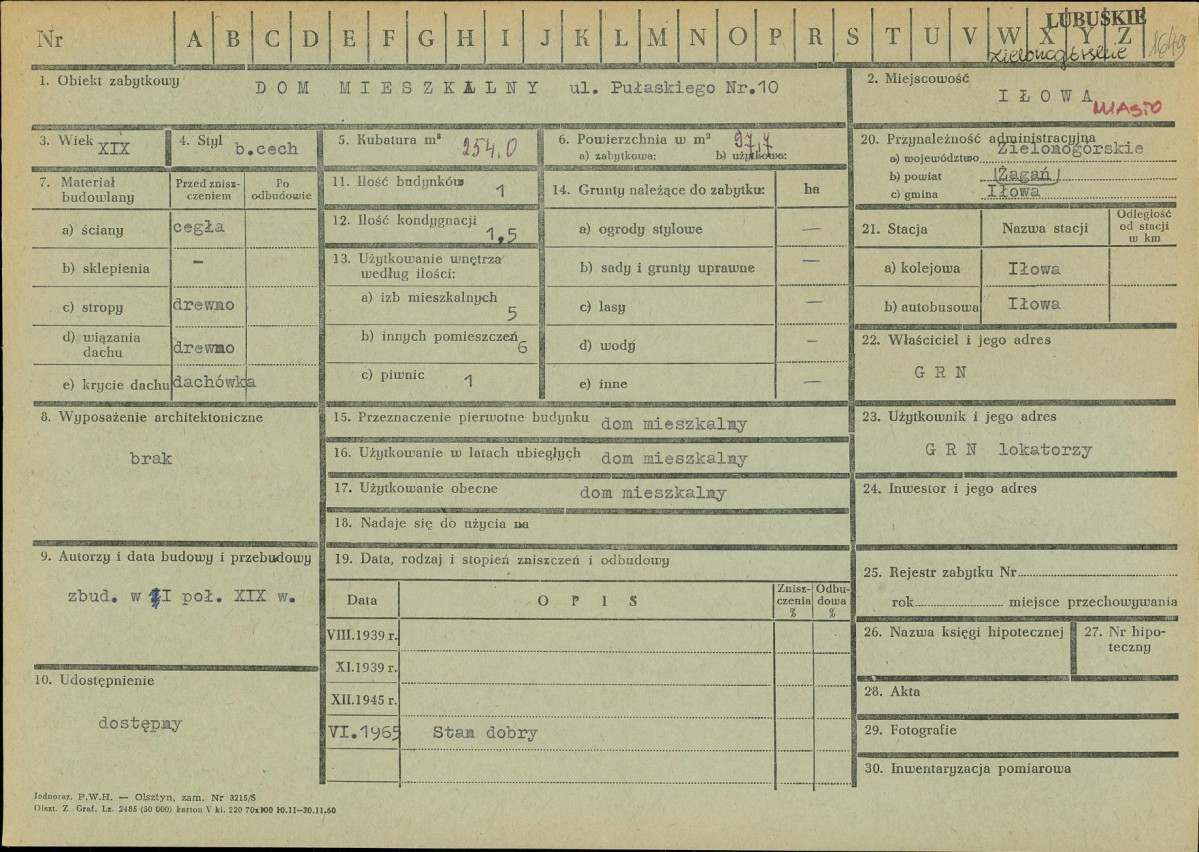 LUBUSKIE
Nr A B C D E F G H I J K L M N O P R S T U V W X Y Z
zielonogórskie 1649
1. Obiekt zabytkowy DOM MIESZKALNY ul. Pułaskiego Nr.10
2. Miejscowość
IŁOWA
MIASTO
3. Wiek XIX
4. Styl b.cech
5. Kubatura m³ 254.0
6. Powierzchnia w m² 97,7
a) zabytkowa: b) użytkowa:
7. Materiał budowlany
Przed zniszczeniem
Po odbudowie
a) ściany cegła
b) sklepienia –
c) stropy drewno
d) wiązania dachu drewno
e) krycie dachu dachówka
8. Wyposażenie architektoniczne
brak
9. Autorzy i data budowy i przebudowy
zbud. w I poł. XIX w.
10. Udostępnienie
dostępny
11. Ilość budynków 1
12. Ilość kondygnacji 1,5
13. Użytkowanie wnętrza
według ilości:
a) izb mieszkalnych 5
b) innych pomieszczeń 6
c) piwnic 1
14. Grunty należące do zabytku: ha
a) ogrody stylowe —
b) sady i grunty uprawne —
c) lasy —
d) wody —
e) inne —
15. Przeznaczenie pierwotne budynku dom mieszkalny
16. Użytkowanie w latach ubiegłych dom mieszkalny
17. Użytkowanie obecne dom mieszkalny
18. Nadaje się do użycia na
19. Data, rodzaj i stopień zniszczeń i odbudowy
Data OPIS Zniszczenia % Odbudowa %
VIII.1939 r.
XI.1939 r.
XII.1945 r.
VI.1965 Stan dobry
20. Przynależność administracyjna
a) województwo Zielonogórskie
b) powiat Żagań
c) gmina Iłowa
21. Stacja Nazwa stacji Odległość od stacji w km
a) kolejowa Iłowa
b) autobusowa Iłowa
22. Właściciel i jego adres
G R N
23. Użytkownik i jego adres
G R N lokatorzy
24. Inwestor i jego adres
25. Rejestr zabytku Nr
rok miejsce przechowywania
26. Nazwa księgi hipotecznej
27. Nr hipoteczny
28. Akta
29. Fotografie
30. Inwentaryzacja pomiarowa
Jednoraz. P.W.H. — Olsztyn, zam. Nr 3215/S
Olszt. Z. Graf. Lz. 2485 (30 000) karton V kl. 220 70x100 10.11—30.11.60